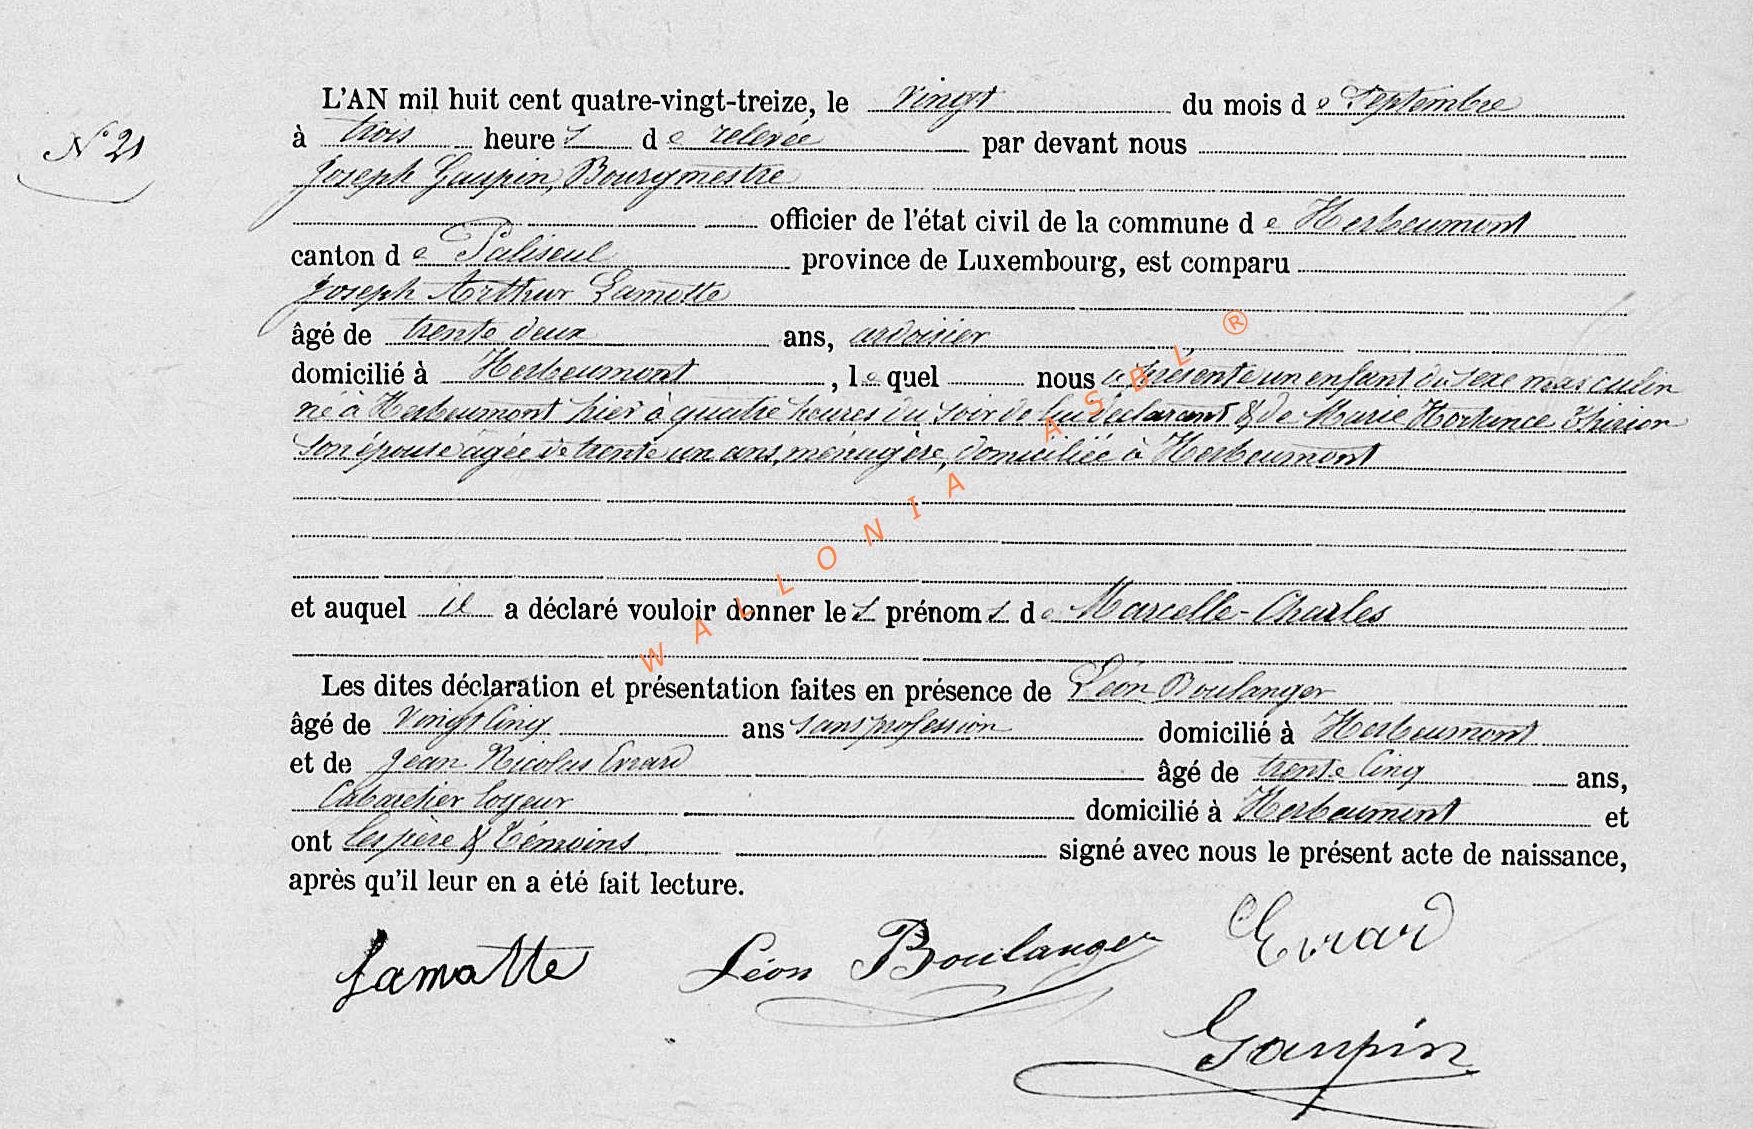 L'AN mil huit cent quatre-vingt-treize, le vingt du mois de Septembre
N° 21
à trois heures de relevée par devant nous
Joseph Gaupin, Bourgmestre
officier de l'état civil de la commune de Herbeumont
canton de Paliseul province de Luxembourg, est comparu
Joseph Arthur Lamotte
âgé de trente deux ans, ardoisier
domicilié à Herbeumont, lequel nous a présenté un enfant du sexe masculin
né à Herbeumont hier à quatre heures du soir de lui déclarant & de Marie Hortence Thirion
son épouse âgée de trente un ans, ménagère, domiciliée à Herbeumont
et auquel il a déclaré vouloir donner les prénoms de Marcelle-Charles
Les dites déclaration et présentation faites en présence de Léon Boulanger
âgé de vingt cinq ans sans profession domicilié à Herbeumont
et de Jean Nicolas Evrard âgé de trente cinq ans,
Cabaretier domicilié à Herbeumont et
ont les père & témoins signé avec nous le présent acte de naissance,
après qu'il leur en a été fait lecture.
Lamotte Léon Boulanger Evrard
Gaupin
WALLONIA ASBL ®